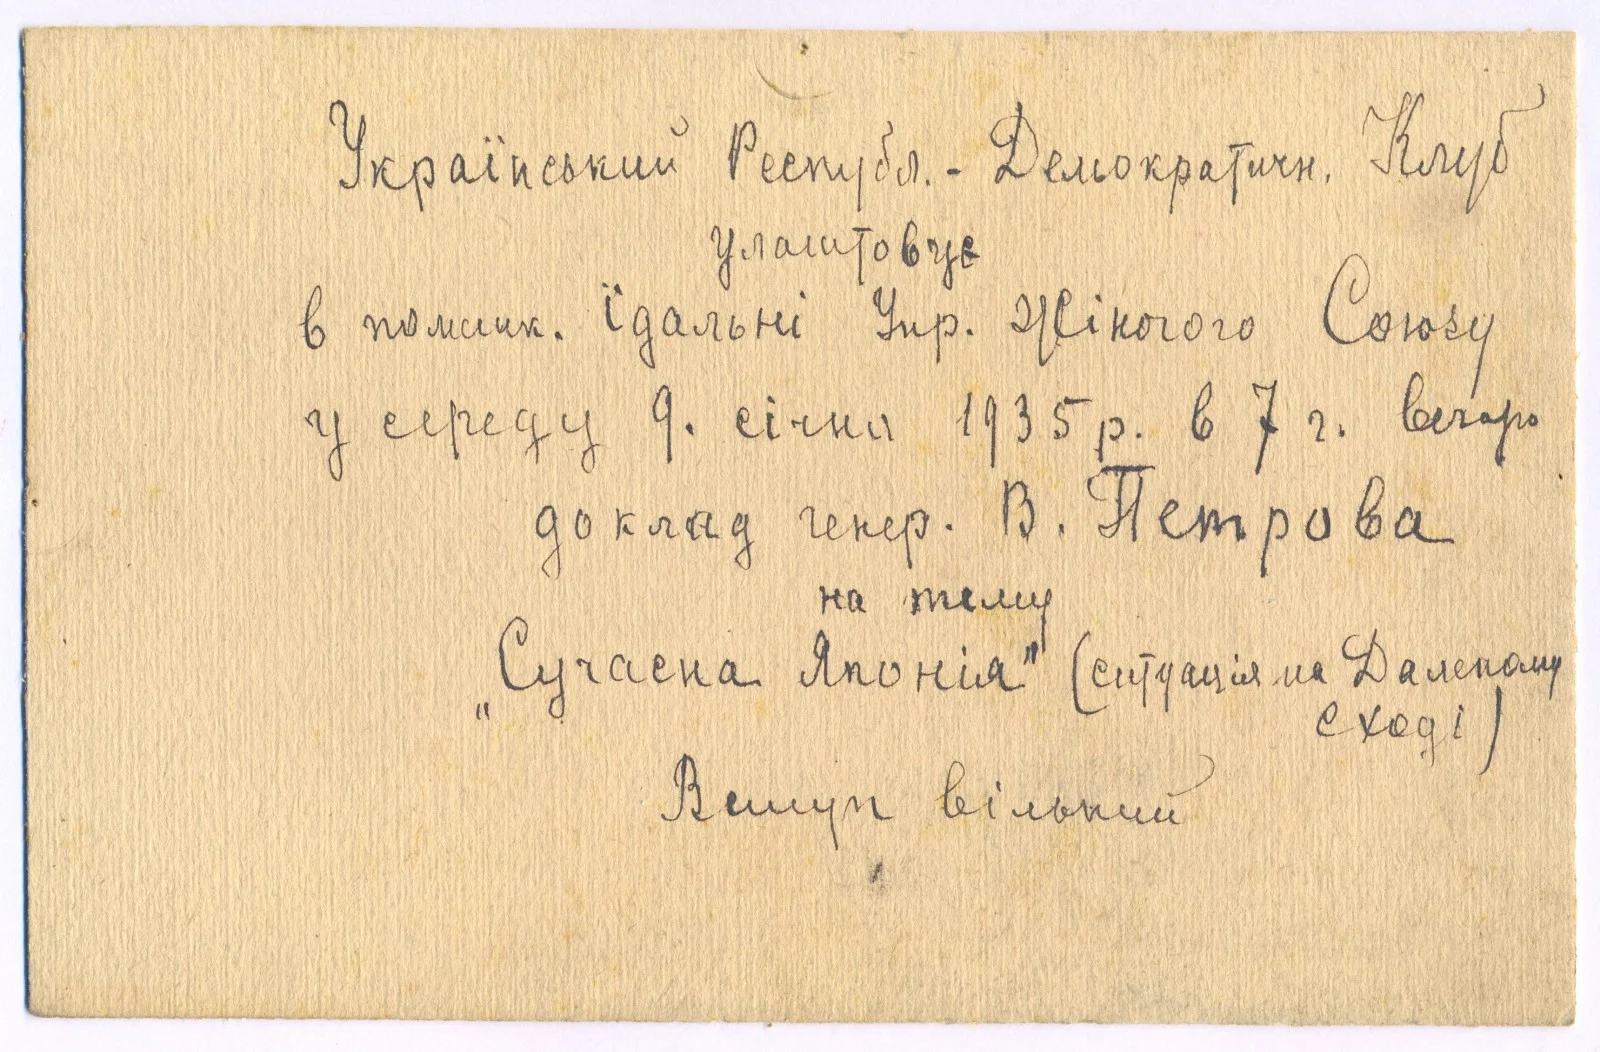 Український Републ.-Демократичн. Клуб
улаштовує
в помешк. їдальні Укр. Жіночого Союзу
у середу 9. січня 1935 р. в 7 г. вечора
доклад генер. В. Петрова
на тему
„Сучасна Японія" (ситуація на Далекому
сході)
Вступ вільний